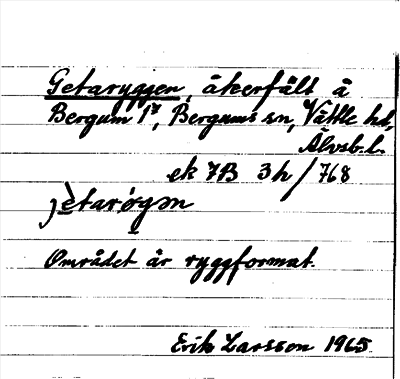 Getaryggen, åkerfält å
Bergum 1⁷, Bergums sn, Vättle hd,
Älvsb. l.
ek 7B 3h/768
jètarǿgən
Området är ryggformat.
Erik Larsson 1965